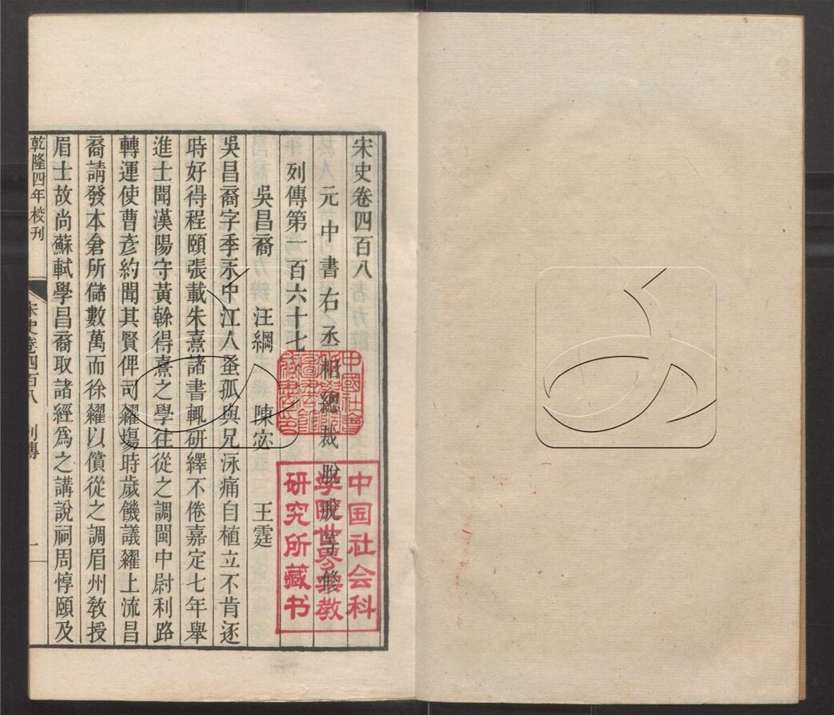 宋史卷四百八
元中書右丞相總裁脫脫等修
列傳第一百六十七
吳昌裔 汪綱 陳宓 王霆
吳昌裔字季永中江人蚤孤與兄泳痛自植立不肯逐
時好得程頤張載朱熹諸書輒研繹不倦嘉定七年舉
進士聞漢陽守黃榦得熹之學往從之調閩中尉利路
轉運使曹彥約聞其賢俾司糴場時歲饑議糴上流昌
裔請發本倉所儲數萬而徐糴以償從之調眉州敎授
眉士故尚蘇軾學昌裔取諸經爲之講說祠周惇頤及
乾隆四年校刊
宋史卷四百八 列傳 一
中国社会科
学院世界宗教
研究所藏书